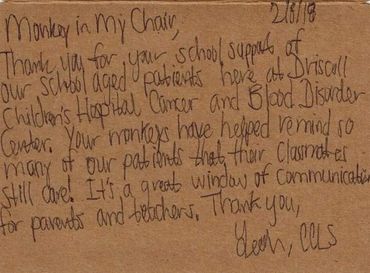 2/8/18
Monkey in My Chair,
Thank you for your school support of
our school aged patients here at Driscoll
Children's Hospital Cancer and Blood Disorder
Center. Your monkeys have helped remind so
many of our patients that their classmates
still care! It's a great window of communication
for parents and teachers. Thank you,
Leah, CCLS